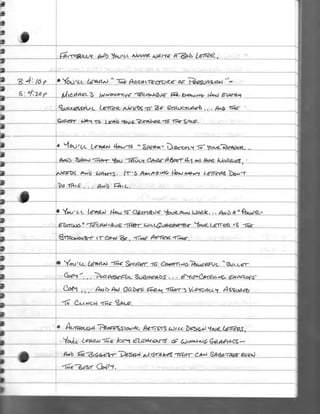 FAITHFULLY AND YOU'LL NEVER WRITE A BAD LETTER.
• YOU'LL LEARN "THE ARCHITECTURE OF PERSUASION" –
MICHAEL'S INNOVATIVE TECHNIQUE FOR KNOWING HOW EVERY
SUCCESSFUL LETTER NEEDS TO BE STRUCTURED... AND THE
WAY TO LEAD YOUR READER TO THE SALE.
• YOU'LL LEARN HOW TO "SPEAK" DIRECTLY TO YOUR READER
AND SHOW THAT YOU TRULY CARE ABOUT HIS OR HER WORRIES,
NEEDS AND WANTS. IT'S AMAZING HOW MANY LETTERS DON'T
DO THIS... AND FAIL.
• YOU'LL LEARN HOW TO CRITIQUE YOUR OWN WORK... AND A "POWER-
EDITING" TECHNIQUE THAT WILL GUARANTEE YOUR LETTER IS THE
STRONGEST IT CAN BE, TIME AFTER TIME.
• YOU'LL LEARN THE SECRET TO CRAFTING POWERFUL "BULLET
COPY"... PURPOSEFUL SUBHEADS... EYE-CATCHING ENVELOPE
COPY... AND AN ORDER FORM THAT'S VIRTUALLY ASSURED
TO CLINCH THE SALE.
• ALTHOUGH PROFESSIONAL ARTISTS WILL DESIGN YOUR LETTERS,
YOU'LL LEARN THE KEY ELEMENTS OF WINNING GRAPHICS –
AND THE BIGGEST DESIGN MISTAKES THAT CAN SABOTAGE EVEN
THE BEST COPY.